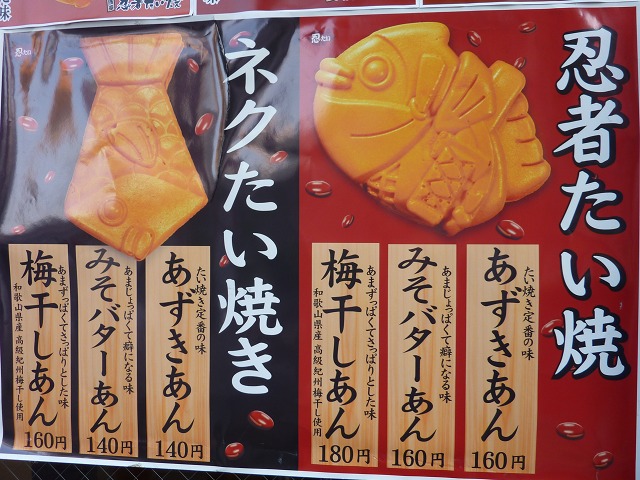 忍者たい焼
忍たい
たい焼き定番の味
あずきあん
160円
あまじょっぱくて癖になる味
みそバターあん
160円
あまずっぱくてさっぱりとした味
梅干しあん
和歌山県産 高級紀州梅干し使用
180円
ネクたい焼き
忍たい
たい焼き定番の味
あずきあん
140円
あまじょっぱくて癖になる味
みそバターあん
140円
あまずっぱくてさっぱりとした味
梅干しあん
和歌山県産 高級紀州梅干し使用
160円